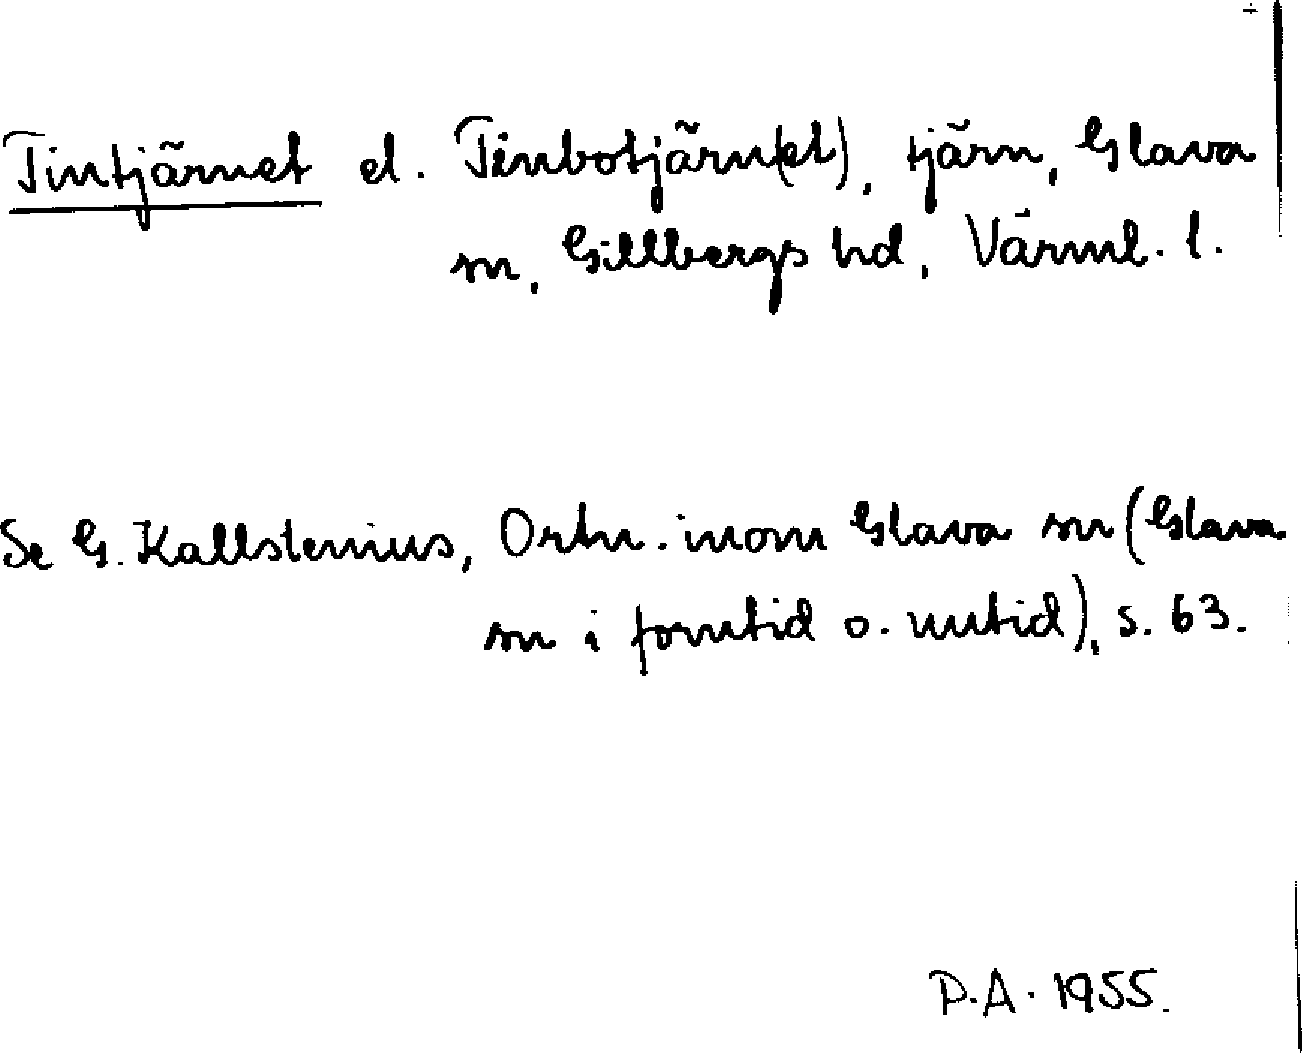 Tintjärnet el. Tinbotjärn(et), tjärn, Glava
sn, Gillbergs hd, Värml. l.
Se G. Kallstenius, Ortn. inom Glava sn (Glava
sn i forntid o. nutid), s. 63.
P.A. 1955.